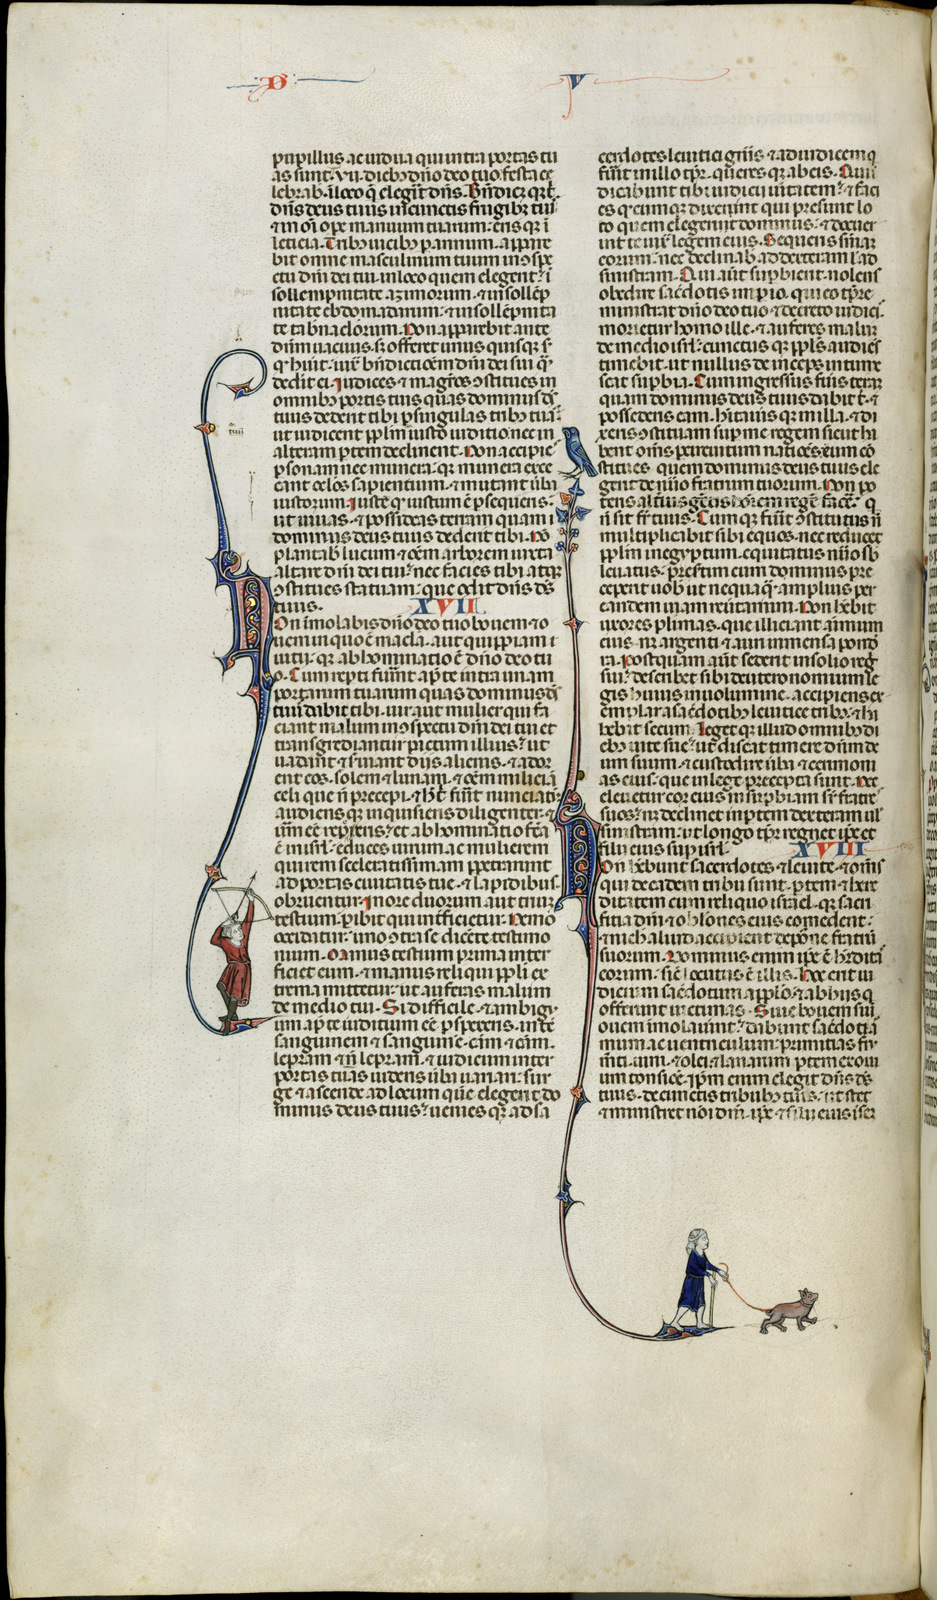 D
V
pupillus ac uidua qui intra portas tu
as sunt. VII. dieb; dño deo tuo festa ce
lebrab. ī loco q̄ elegīt dñs. Bñdicz q; t̄
dñs deus tuus in cunctis frugib; tuis
leticia. Trib; uicib; p annum. appare
bit omne masculinum tuum in ɔspe
ctu dñi dei tui in loco quem elegerit. ī
sollempnitate azimorum. ⁊ in sollēp
nitate ebdomadarum. ⁊ in sollēpnita
te tabnaclorum. Non apparebit ante
dñm uacuus. sʒ offeret unus quisq; s̄
dedit ei. Iudices ⁊ magr̄os ɔstitues in
omnib; portis tuis quas dominus ds̄
tuus dederit tibi p singulas trib; tuas
ut iudicent pplm iusto iuditio. nec in
alteram ptem declinent. Non accipies
psonam nec munera. q; munera exce
cant oc̄los sapientum. ⁊ mutant ūba
iustorum. Iuste q̄ iustum ē psequeris.
ut uiuas. ⁊ possideas terram quam
dominus deus tuus dederit tibi. Nō
plantab lucum ⁊ oēm arborem iuxta
altare dñi dei tui. nec facies tibi atq;
ɔstitues statuam. que odit dñs ds̄
tuus. XVII
On imolabis dño deo tuo bouem ⁊ o
uem in quo ē macla. aut quippiam
uitii. q; abhominatio ē dño deo tu
o. Cum repti fuīnt ap te intra unam
portarum tuarum quas dominus ds̄
tuus dabit tibi. uir aut mulier qui fa
ciant malum in ɔspectu dñi dei tui et
transgrediantur pactum illius. ut
uadant ⁊ s̄uiant diis alienis. ⁊ ador
ent eos. solem ⁊ lunam. ⁊ oēm militiā
celi que ñ precepi. ⁊ hoc tibi fuīt nunciatū
audiens q; inquisieris diligenter. ⁊
uerum eē reppereris. et abhominatio facta
ē in isrl. educes uirum ac mulierem
qui rem sceleratissimam ppetrarunt
ad portas ciuitatis tue. ⁊ lapidibus
obruentur. In ore duorum aut trium
testium. pibit qui intficietur. Nemo
occidatur. uno ɔtra se dicēte testimo
nium. Manus testium prima inter
ficiet eum. ⁊ manus reliqui ppli ex
trema mittetur. ut auferas malum
de medio tui. Si difficile. ⁊ ambigu
um ap te iuditium eē pspexeris. inter
sanguinem ⁊ sanguinē. cām ⁊ cām.
lepram ⁊ ñ lepram. ⁊ iudicum inter
portas tuas uidens ūba uariari. sur
ge ⁊ ascende ad locum quē elegerit do
minus deus tuus. uenies q; ad sa
cerdotes leuitici gñis ⁊ ad iudicem q
fuīt in illo tpr̄. queres q; ab eis. Qui in
dicabunt tibi iudicii ūitatem. ⁊ faci
es q̄cumq; dixerint qui presunt lo
co quem elegerit dominus. ⁊ docuer
int te iux̄ legem eius. Sequeris s̄niam
eorum. nec declinab ad dexteram l ad
sinistram. Qui aūt supbierit. nolens
obedire sac̄dotis impio. qui eo tpr̄e
ministrat dño deo tuo. ⁊ decreto iudicis
morietur homo ille. ⁊ auferes malum
de medio isrl. cunctus q; ppls audies
timebit. ut nullus deinceps intume
scat supbia. Cum ingressus fuis terram
quam dominus deus tuus dabit t. ⁊
possederis eam. hītauis q; in illa. ⁊ di
xeris ɔstituam sup me regem sicut ha
bent om̄s p circuitum nationes. eum cō
stitues quem dominus deus tuus ele
gerit de nūio fratrum tuorum. Non po
teris alterius gentis hoīem regē facē. q
ñ sit fr̄ tuus. Cumq; fuīt ɔstitutus ñ
multiplicabit sibi equos. nec reducet
pplm in egyptum. equitatus nūio sb
leuatus. presertim cum dominus pre
ceperit uob ut nequaq̄ amplius per
eandem uiam reuertamini. Non hēbit
uxores plimas. que illiciant animum
eius. ne argenti ⁊ auri inmensa pondera.
Postquam aūt sederit in solio regni
sui. describet sibi deuteronomium le
gis huius in uolumine. accipiens ex
emplar a sac̄dotib; leuitice trib;. ⁊ ha
bebit secum. leget q; illud omnib; di
eb; uite sue. ut discat timere dñm de
um suum. ⁊ custodire ūba ⁊ cerimoni
as eius. que in lege precepta sunt. Nec
eleuetur cor eius in supbiam sr̄ fratres
suos. ne declinet in ptem dexteram uel
sinistram. ut longo tpr̄ regnet ip̄e et
filii eius sup isrl. XVIII
On hēbunt sacerdotes ⁊ leuite. ⁊ om̄s
qui de eadem tribu sunt. ptem ⁊ here
ditatem cum reliquo israel. q; sacri
ficia dñi ⁊ oblōnes eius comedent.
⁊ nichil aliud accipient de possessione fratrum
suorum. Dominus enim ip̄e ē hr̄editas
eorum. sic locutus ē illis. Hoc erit iu
dicium sac̄dotum a pplo. ⁊ ab hiis q
offerunt uictimas. Siue bouem siue
ouem imolauīnt. dabunt sac̄doti ar
mum ac uentriculum. primitias fru
menti. uini. ⁊ olei. ⁊ lanarum ptem ex oui
um tonsiōe. ip̄m enim elegit dñs ds̄
tuus. de cunctis tribub; tuis. ut stet
⁊ ministret nōi dñi. ip̄e ⁊ filii eius i sep